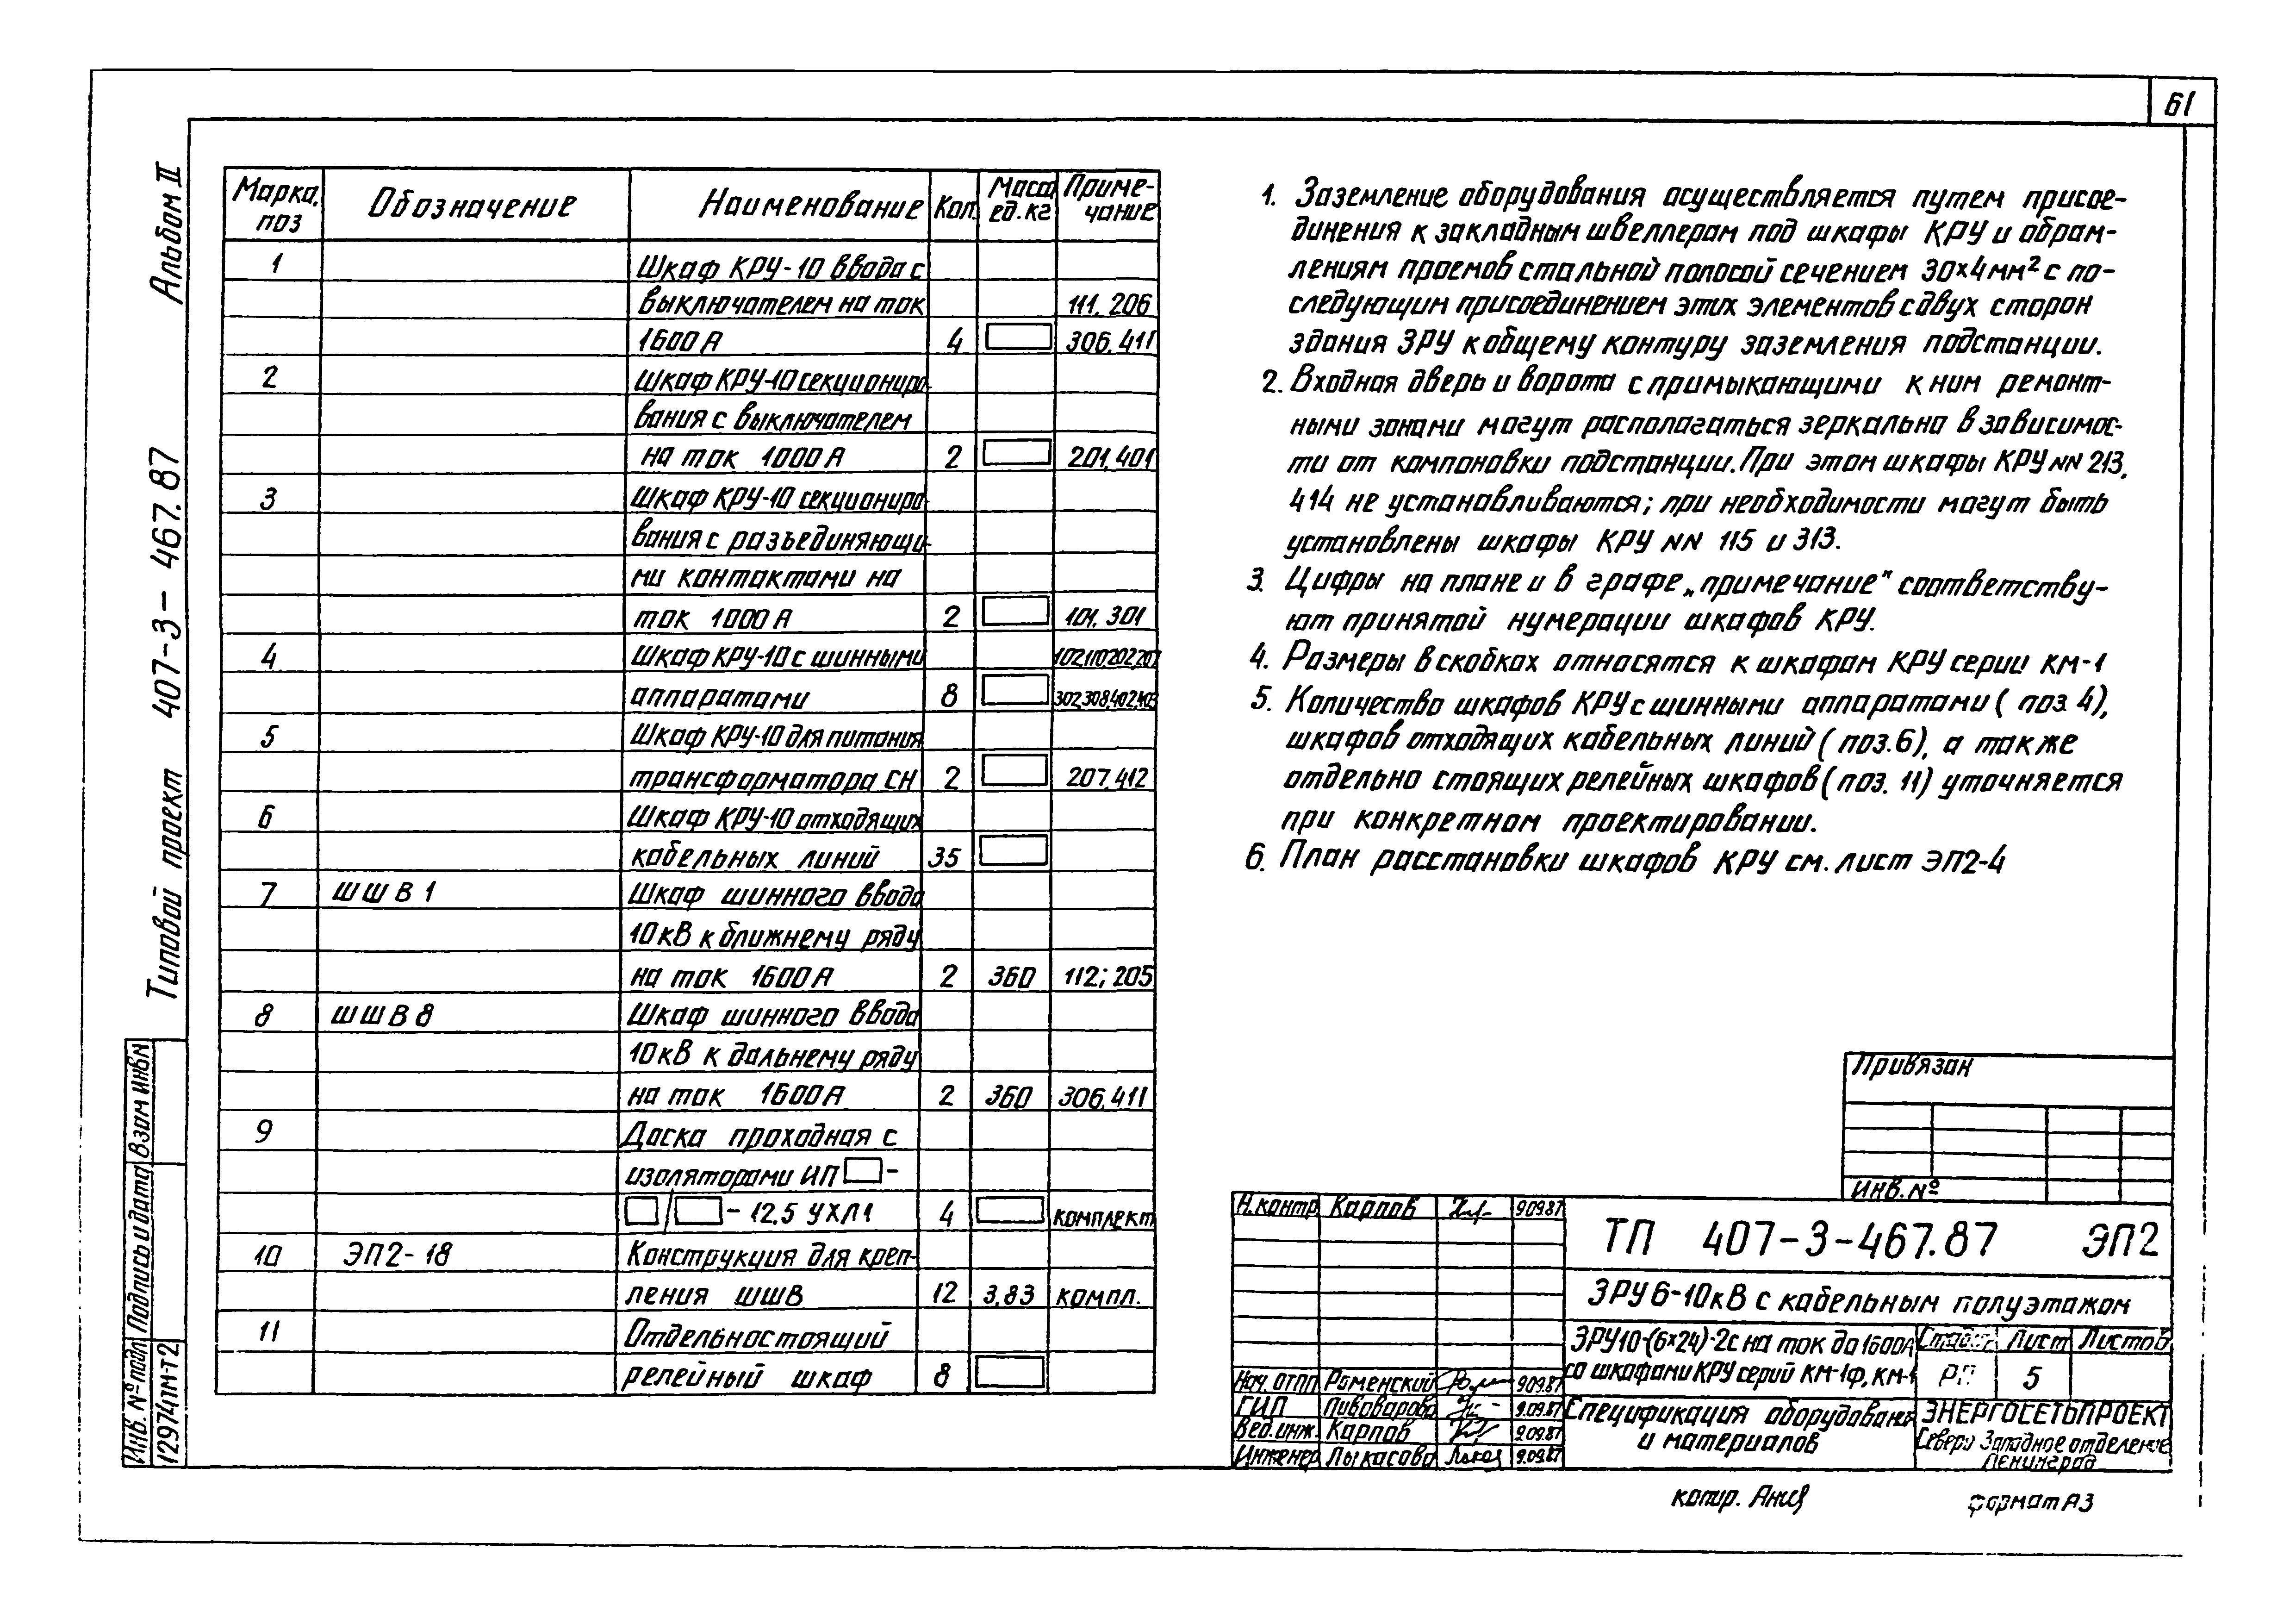 61
Альбом II
Типовой проект 407-3-467.87
Взам инв N
Подпись и дата
Инв. № подл
12974тм-т2
Марка, поз Обозначение Наименование Кол. Масса ед. кг Приме-чание
1 Шкаф КРУ-10 ввода с
выключателем на ток 111, 206
1600 А 4 306, 411
2 Шкаф КРУ-10 секциониро-
вания с выключателем
на ток 1000 А 2 201, 401
3 Шкаф КРУ-10 секциониро-
вания с разъединяющи-
ми контактами на
ток 1000 А 2 101, 301
4 Шкаф КРУ-10 с шинными 102,110,202,207
аппаратами 8 302,308,402,403
5 Шкаф КРУ-10 для питания
трансформатора СН 2 207, 412
6 Шкаф КРУ-10 отходящих
кабельных линий 35
7 ШШВ1 Шкаф шинного ввода
10кВ к ближнему ряду
на ток 1600 А 2 360 112; 205
8 ШШВ8 Шкаф шинного ввода
10кВ к дальнему ряду
на ток 1600 А 2 360 306, 411
9 Доска проходная с
изоляторами ИП -
/ - 12,5 УХЛ1 4 комплект
10 ЭП2-18 Конструкция для креп-
ления ШШВ 12 3,83 компл.
11 Отдельностоящий
релейный шкаф 8
1. Заземление оборудования осуществляется путем присое-
динения к закладным швеллерам под шкафы КРУ и обрам-
лениям проемов стальной полосой сечением 30×4 мм² с по-
следующим присоединением этих элементов с двух сторон
здания ЗРУ к общему контуру заземления подстанции.
2. Входная дверь и ворота с примыкающими к ним ремонт-
ными зонами могут располагаться зеркально в зависимос-
ти от компоновки подстанции. При этом шкафы КРУ NN 213,
414 не устанавливаются; при необходимости могут быть
установлены шкафы КРУ NN 115 и 313.
3. Цифры на плане и в графе „примечание" соответству-
ют принятой нумерации шкафов КРУ.
4. Размеры в скобках относятся к шкафам КРУ серии КМ-1
5. Количество шкафов КРУ с шинными аппаратами ( поз. 4),
шкафов отходящих кабельных линий ( поз. 6), а также
отдельно стоящих релейных шкафов ( поз. 11) уточняется
при конкретном проектировании.
6. План расстановки шкафов КРУ см. лист ЭП2-4
Привязан
Инв. №
Н.контр Карпов 9.09.87
ТП 407-3-467.87 ЭП2
ЗРУ 6-10кВ с кабельным полуэтажом
ЗРУ10-(6×24)-2с на ток до 1600А
со шкафами КРУ серий КМ-1Ф, КМ-1
Стадия Лист Листов
РП 5
Нач. ОТПП Роменский 9.09.87
ГИП Пивоварова 9.09.87
Вед. инж. Карпов 9.09.87
Инженер Лыкасова 9.09.87
Спецификация оборудования
и материалов
ЭНЕРГОСЕТЬПРОЕКТ
Северо-Западное отделение
Ленинград
копир. Аниз
формат А3